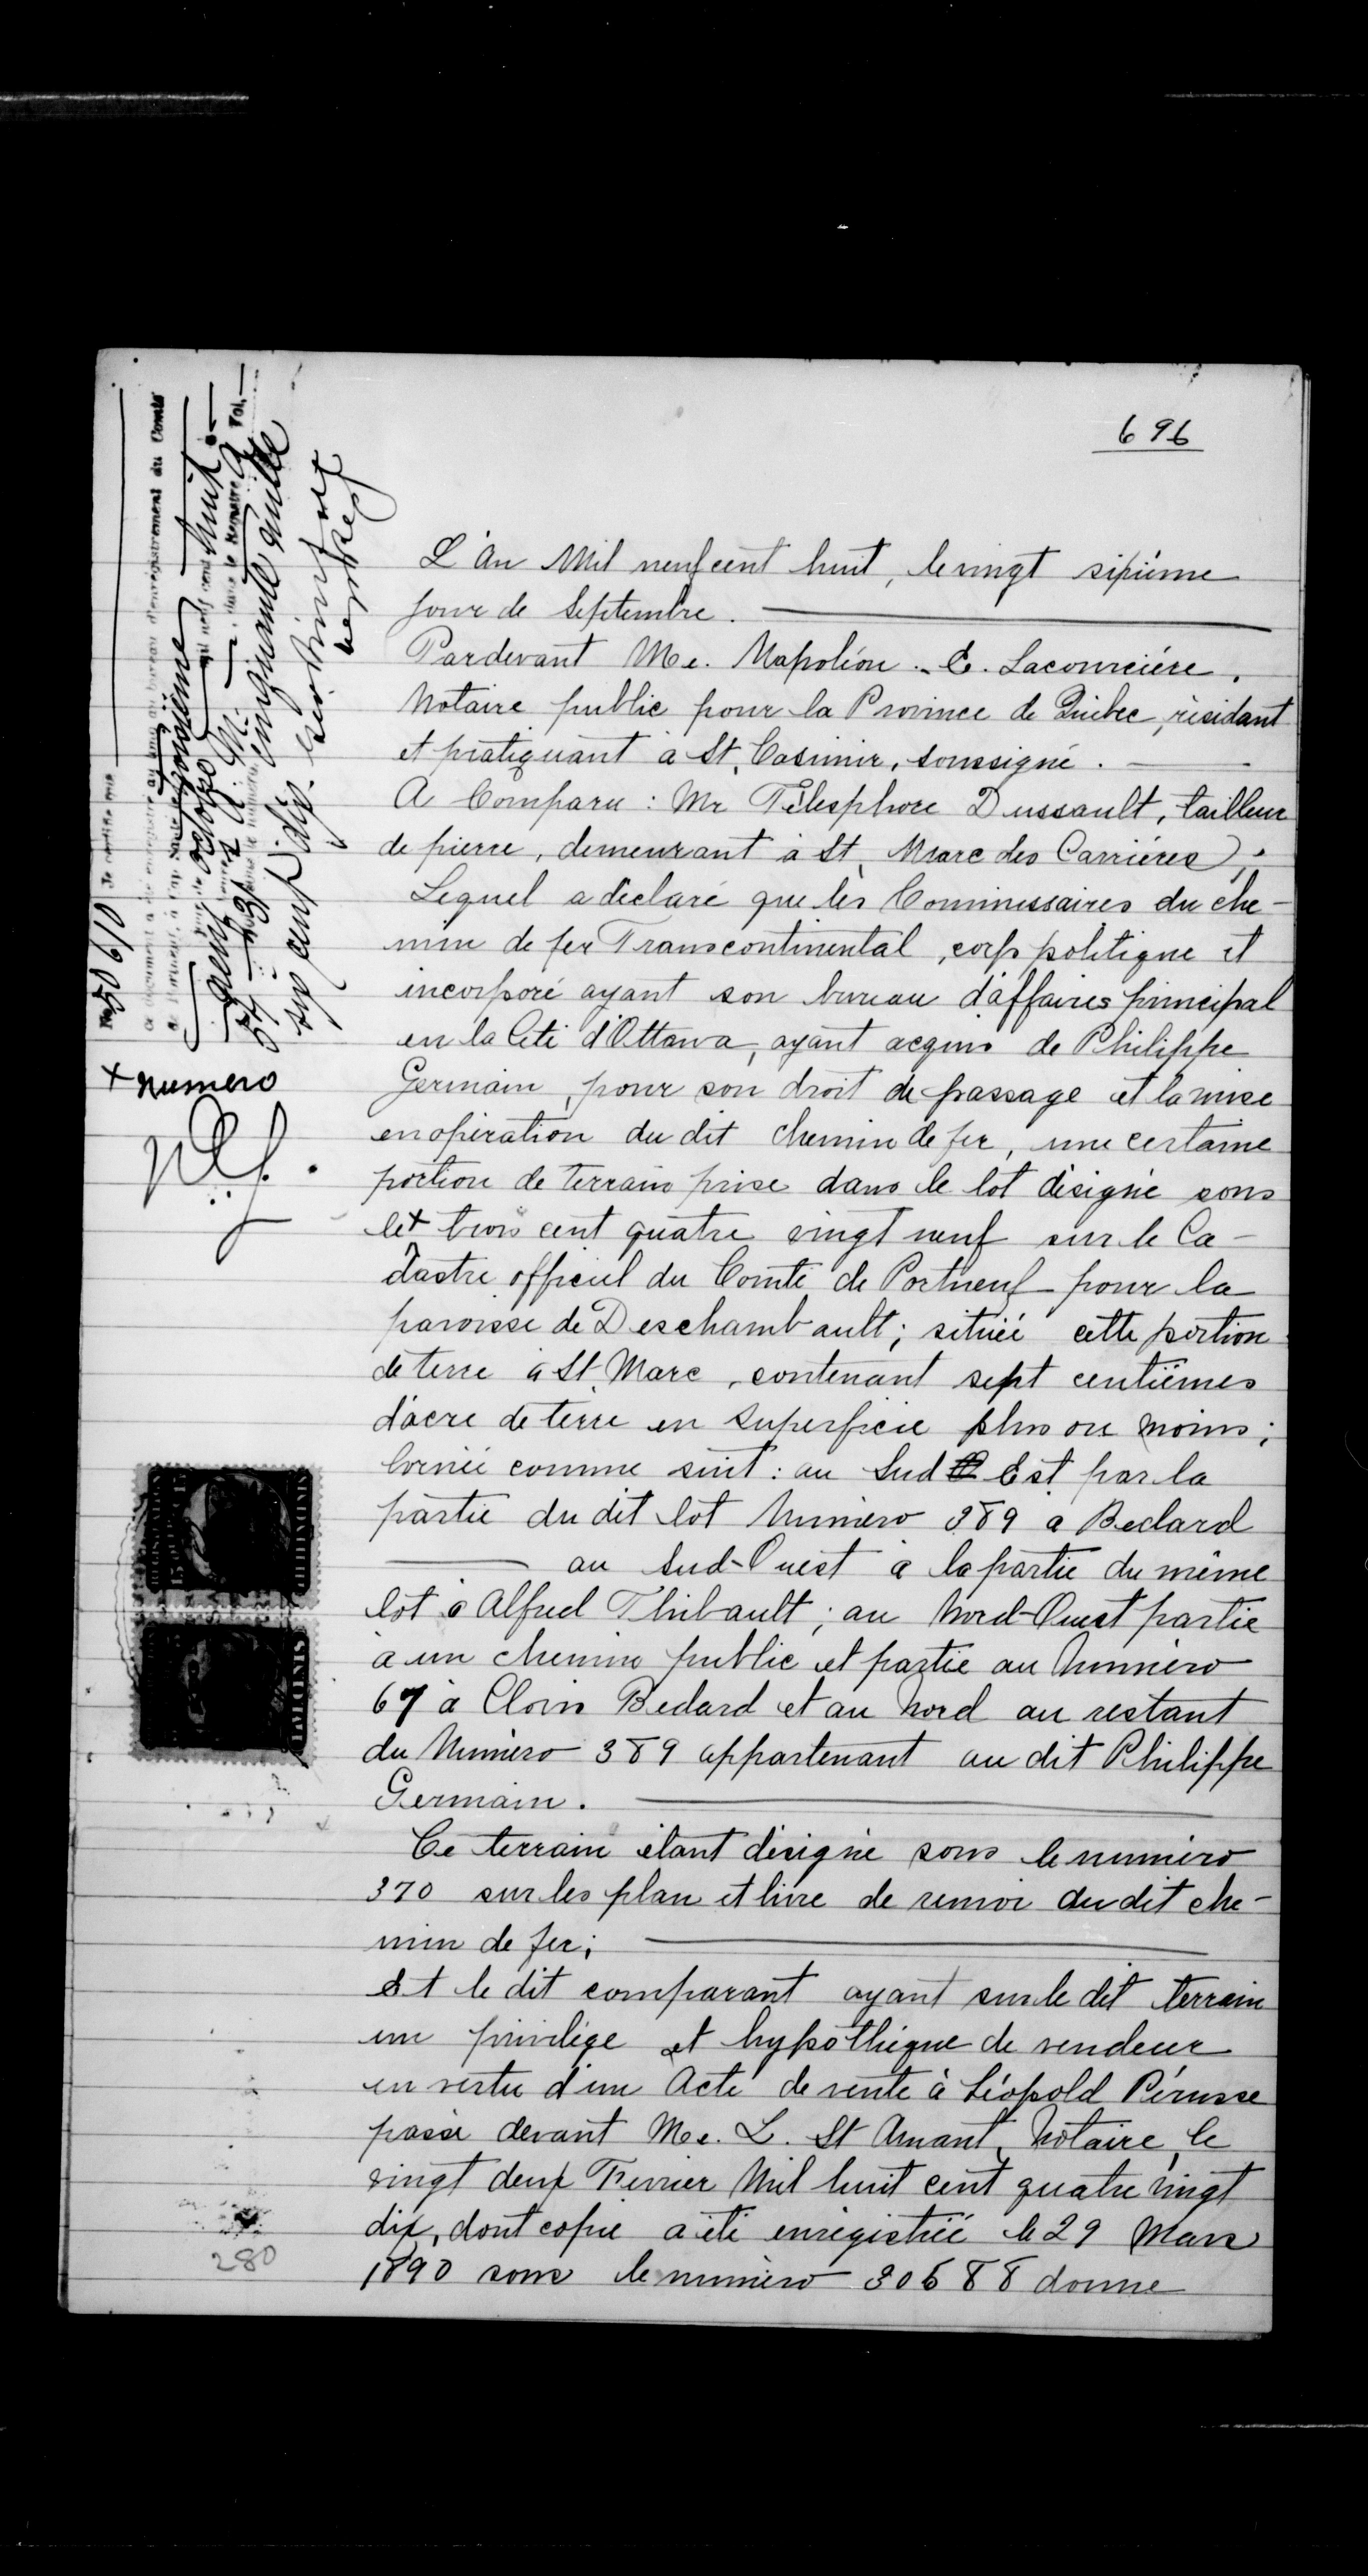 696
L'An Mil neuf cent huit, le vingt sixième
jour de Septembre.
Pardevant Me. Napoléon. E. Lacourcière,
Notaire public pour la Province de Québec, résidant
et pratiquant à St, Casimir, soussigné.
A Comparu : Mr Télesphore Dussault, tailleur
de pierre, demeurant à St, Marc des Carrières ;
Lequel a déclaré que les Commissaires du che-
min de fer Transcontinental, corps politique et
incorporé ayant son bureau d'affaires principal
en la Cité d'Ottawa, ayant acquis de Philippe
Germain, pour son droit de passage et la mise
en opération du dit chemin de fer, une certaine
portion de terrain prise dans le lot désigné sous
le + trois cent quatre vingt neuf sur le Ca-
dastre officiel du Comté de Portneuf pour la
paroisse de Deschambault ; située cette portion
de terre à St. Marc, contenant sept centièmes
d'acre de terre en superficie plus ou moins ;
bornée comme suit : au Sud Est par la
partie du dit lot Numéro 389 a Bedard
au Sud-Ouest à la partie du même
lot à Alfred Thibault ; au Nord-Ouest partie
à un chemin public et partie au Numéro
67 à Cloris Bedard et au Nord au restant
du Numéro 389 appartenant au dit Philippe
Germain.
Ce terrain étant désigné sous le numéro
370 sur les plan et livre de renvoi du dit che-
min de fer ;
Et le dit comparant ayant sur le dit terrain
un privilège et hypothèque de vendeur
en vertu d'un Acte de vente à Léopold Pérusse
passé devant Me. L. St Amant, Notaire, le
vingt deux Fevrier Mil huit cent quatre vingt
dix, dont copie a été enrégistrée le 29 Mars
1890 sous le numéro 30688 donne
No 50610 Je certifie que
ce document a été enregistré au long au bureau d'enregistrement du Comté
octobre mil neuf cent huit
cinquante mille
six cent dix
+ numero
280